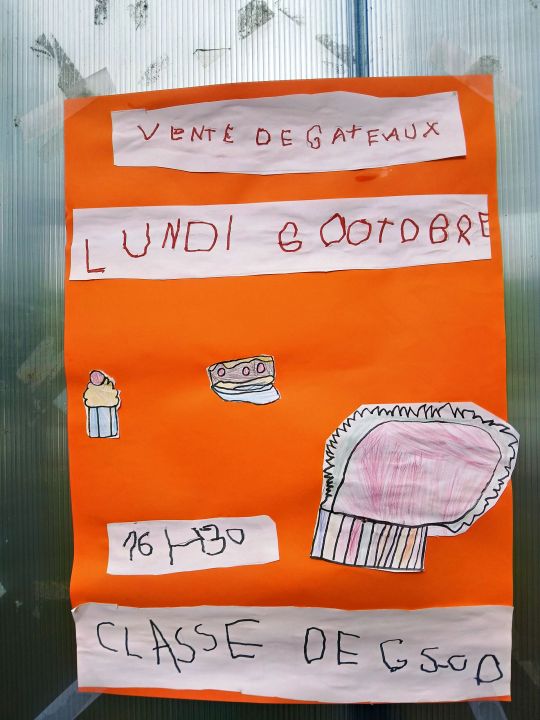 VENTE DE GATEAUX
LUNDI 6 OOTOBRE
16 H30
CLASSE DE